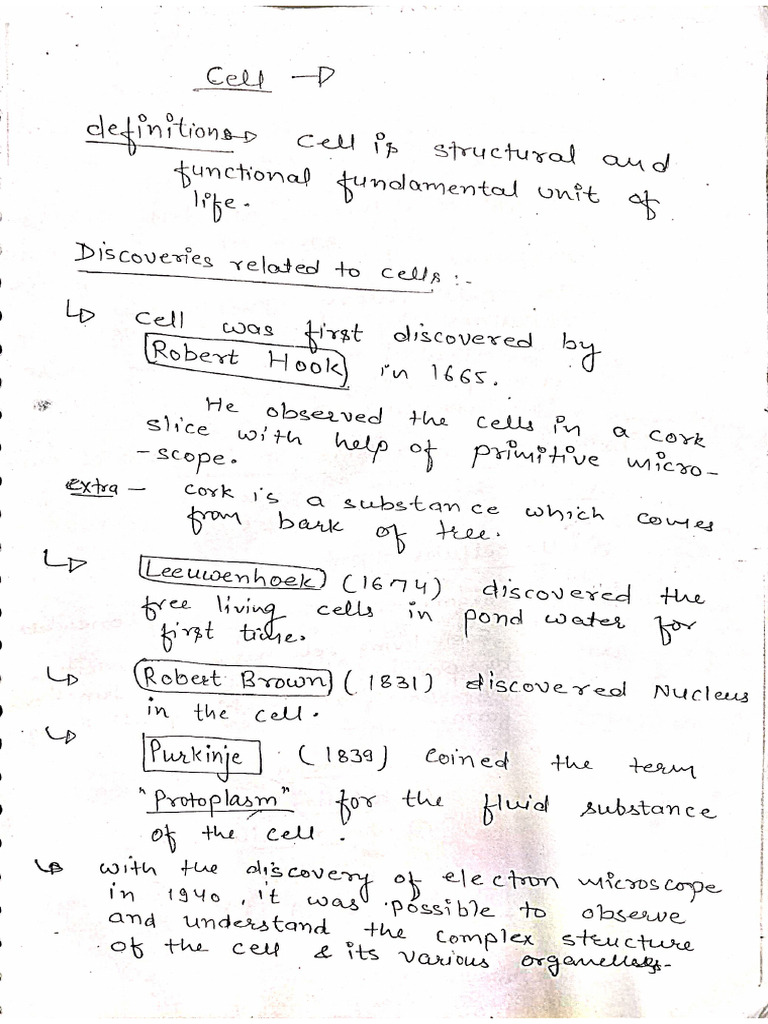 Cell →
definitions → Cell is structural and
functional fundamental unit of
life.
Discoveries related to cells :-
↳ Cell was first discovered by
Robert Hook in 1665.
He observed the cells in a cork
slice with help of primitive micro-
-scope.
extra - cork is a substance which comes
from bark of tree.
↳ Leeuwenhoek (1674) discovered the
free living cells in pond water for
first time.
↳ Robert Brown (1831) discovered Nucleus
in the cell.
↳ Purkinje (1839) coined the term
"Protoplasm" for the fluid substance
of the cell.
↳ with the discovery of electron microscope
in 1940, it was possible to observe
and understand the complex structure
of the cell & its various organelles.